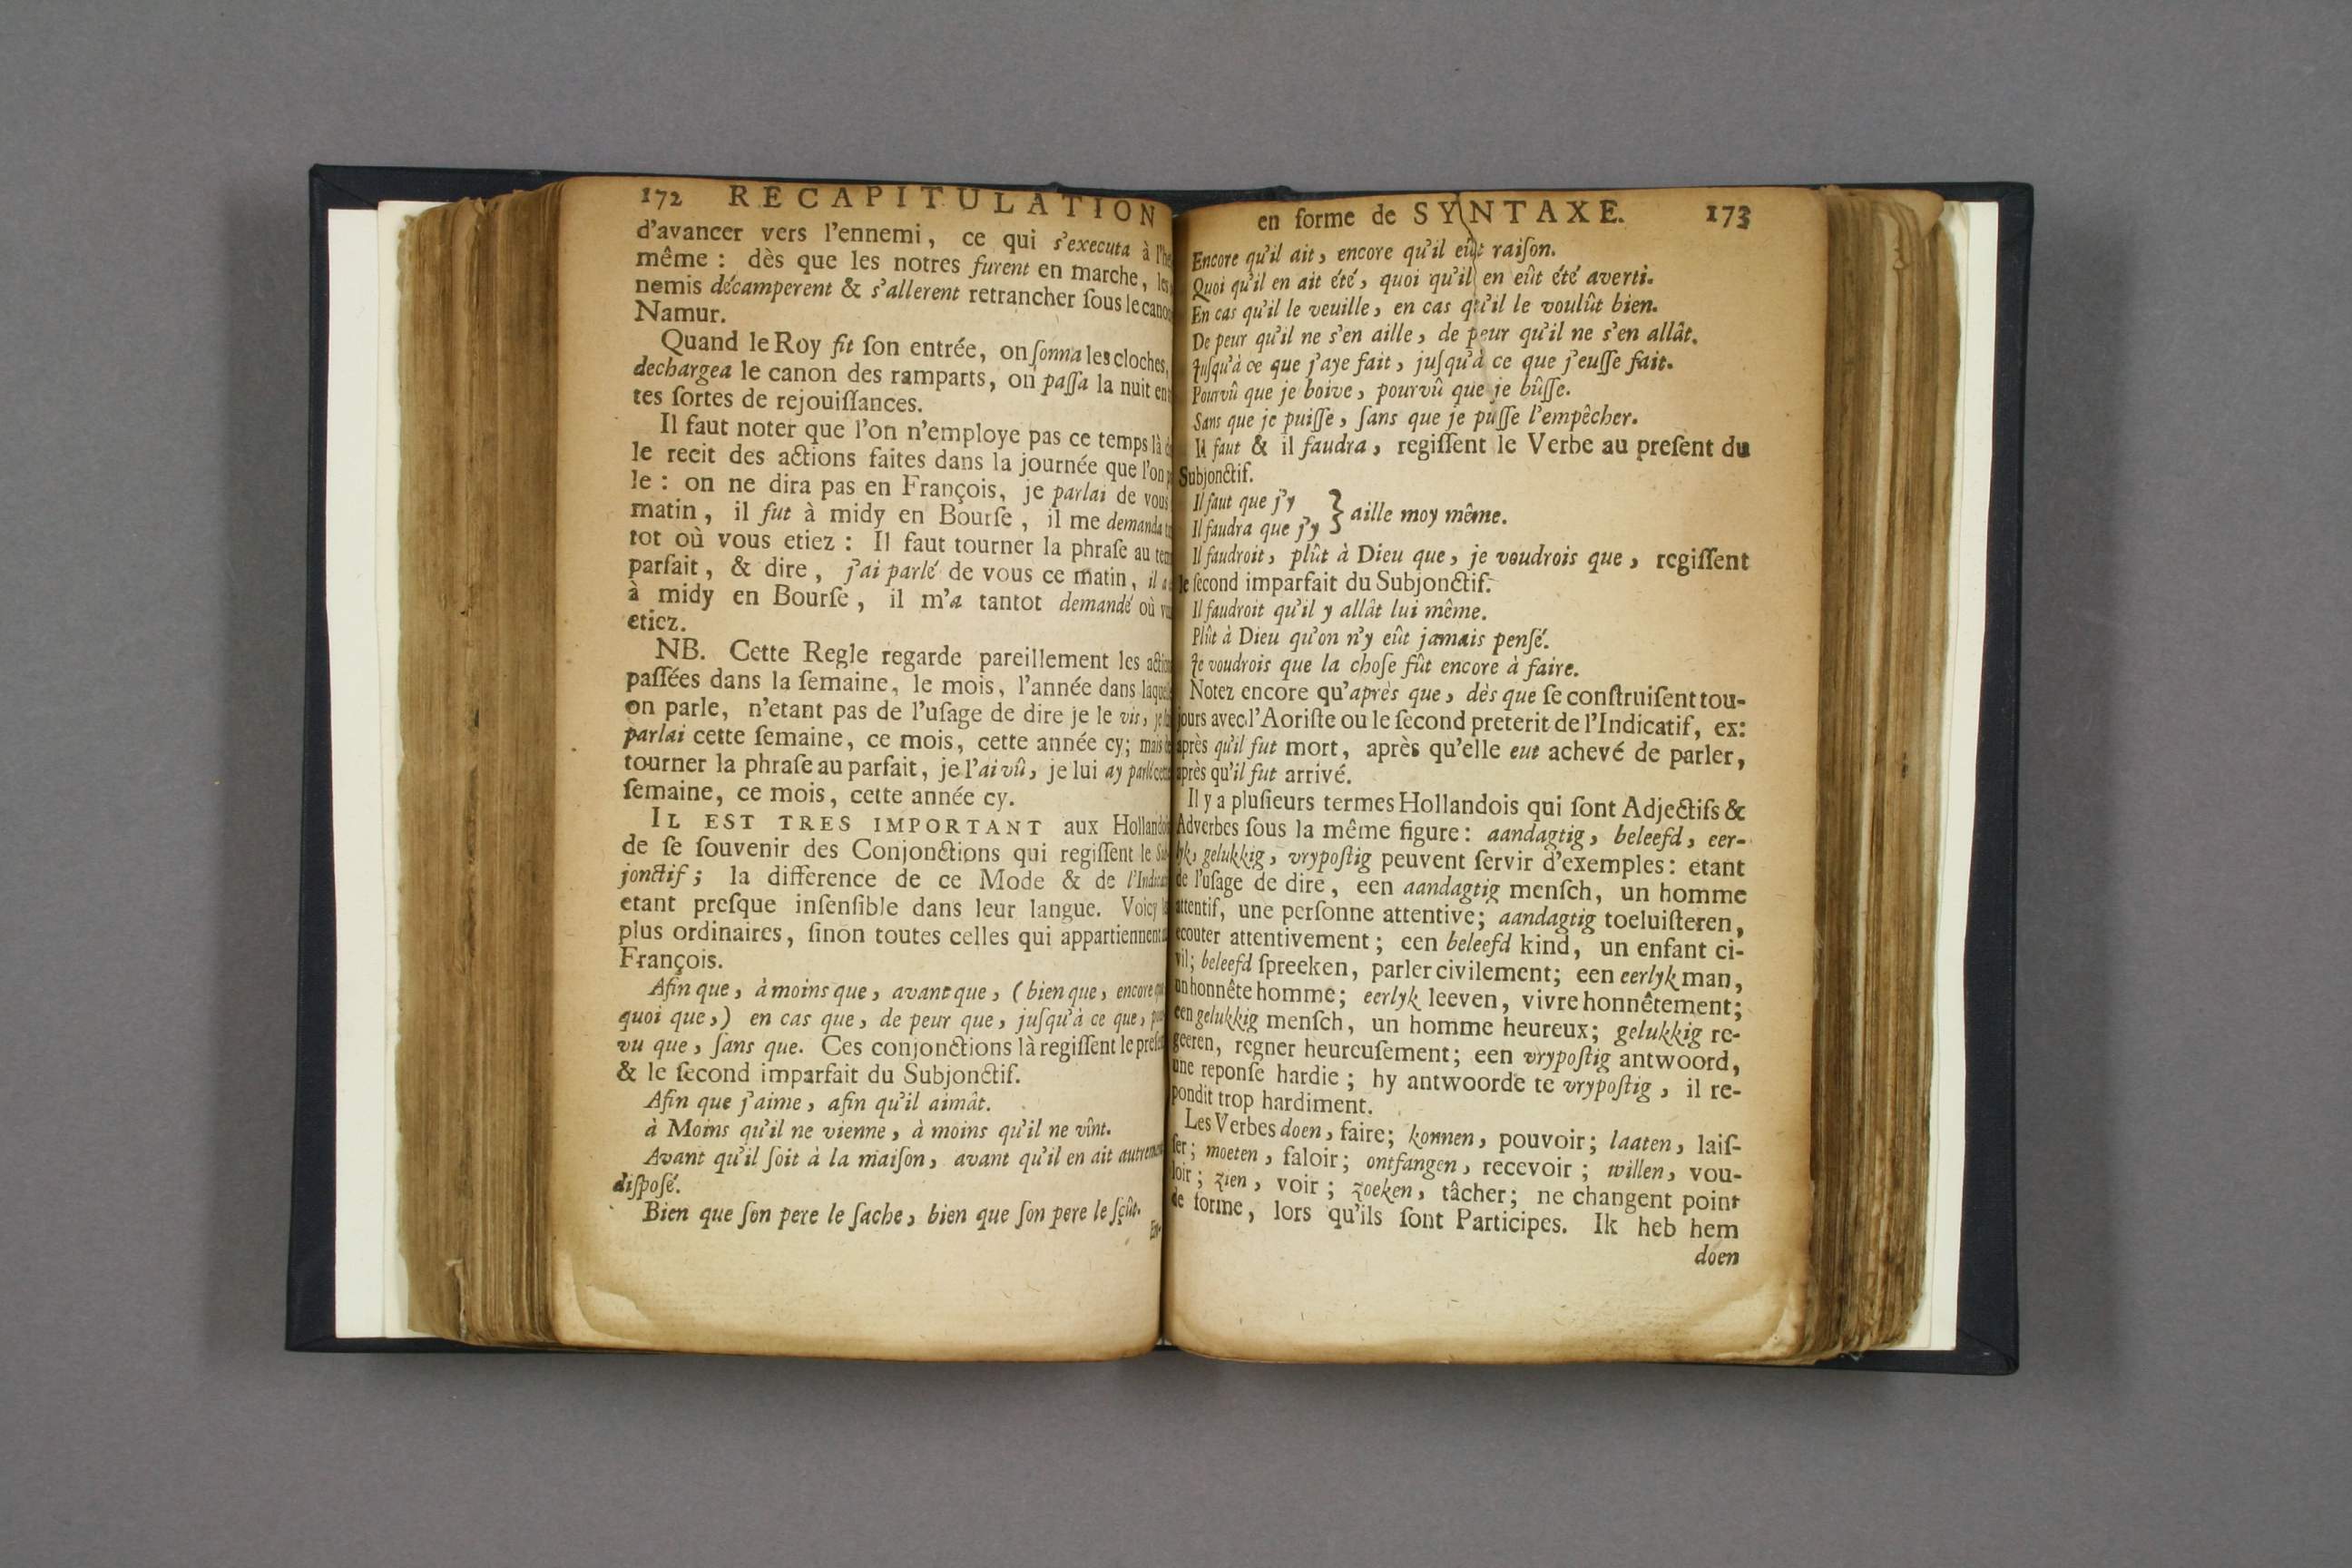 172 RECAPITULATION
d'avancer vers l'ennemi, ce qui s'executa à
même : dès que les notres furent en marche, les
nemis décamperent & s'allerent retrancher ſous le
Namur.
Quand le Roy fit ſon entrée, on ſonna les cloches,
dechargea le canon des ramparts, on paſſa la nuit
tes ſortes de rejouiſſances.
Il faut noter que l'on n'employe pas ce temps là
le recit des actions faites dans la journée que l'on
le : on ne dira pas en François, je parlai de vous
matin, il fut à midy en Bourſe, il me demanda
tot où vous etiez : Il faut tourner la phraſe au
parfait, & dire, j'ai parlé de vous ce matin, il
à midy en Bourſe, il m'a tantot demandé où
etiez.
NB. Cette Regle regarde pareillement les
paſſées dans la ſemaine, le mois, l'année dans
on parle, n'etant pas de l'uſage de dire je le vis,
parlai cette ſemaine, ce mois, cette année cy; mais
tourner la phraſe au parfait, je l'ai vû, je lui ay parlé
ſemaine, ce mois, cette année cy.
IL EST TRES IMPORTANT aux
de ſe ſouvenir des Conjonctions qui regiſſent le
jonctif; la difference de ce Mode & de
etant preſque inſenſible dans leur langue. Voicy
plus ordinaires, ſinon toutes celles qui appartiennent
François.
Afin que, à moins que, avant que, (bien que, encore
quoi que,) en cas que, de peur que, juſqu'à ce que,
vu que, ſans que. Ces conjonctions là regiſſent le
& le ſecond imparfait du Subjonctif.
Afin que j'aime, afin qu'il aimât.
à Moins qu'il ne vienne, à moins qu'il ne vînt.
Avant qu'il ſoit à la maiſon, avant qu'il en ait
diſpoſé.
Bien que ſon pere le ſache, bien que ſon pere le ſçût.
En-
en forme de SYNTAXE. 173
Encore qu'il ait, encore qu'il eût raiſon.
Quoi qu'il en ait été, quoi qu'il en eût été averti.
En cas qu'il le veuille, en cas qu'il le voulût bien.
De peur qu'il ne s'en aille, de peur qu'il ne s'en allât.
Juſqu'à ce que j'aye fait, juſqu'à ce que j'euſſe fait.
Pourvû que je boive, pourvû que je bûſſe.
Sans que je puiſſe, ſans que je puſſe l'empêcher.
Il faut & il faudra, regiſſent le Verbe au preſent du
Subjonctif.
Il faut que j'y
Il faudra que j'y } aille moy même.
Il faudroit, plût à Dieu que, je voudrois que, regiſſent
le ſecond imparfait du Subjonctif.
Il faudroit qu'il y allât lui même.
Plût à Dieu qu'on n'y eût jamais penſé.
Je voudrois que la choſe fût encore à faire.
Notez encore qu'après que, dès que ſe conſtruiſent tou-
jours avec l'Aoriſte ou le ſecond preterit de l'Indicatif, ex:
après qu'il fut mort, après qu'elle eut achevé de parler,
après qu'il fut arrivé.
Il y a pluſieurs termes Hollandois qui ſont Adjectifs &
Adverbes ſous la même figure: aandagtig, beleefd, eer-
lyk, gelukkig, vrypoſtig peuvent ſervir d'exemples: etant
de l'uſage de dire, een aandagtig menſch, un homme
attentif, une perſonne attentive; aandagtig toeluiſteren,
ecouter attentivement; een beleefd kind, un enfant ci-
vil; beleefd ſpreeken, parler civilement; een eerlyk man,
un honnête homme; eerlyk leeven, vivre honnêtement;
een gelukkig menſch, un homme heureux; gelukkig re-
geeren, regner heureuſement; een vrypoſtig antwoord,
une reponſe hardie; hy antwoorde te vrypoſtig, il re-
pondit trop hardiment.
Les Verbes doen, faire; konnen, pouvoir; laaten, laiſ-
ſer; moeten, faloir; ontfangen, recevoir; willen, vou-
loir; zien, voir; zoeken, tâcher; ne changent point
de forme, lors qu'ils ſont Participes. Ik heb hem
doen